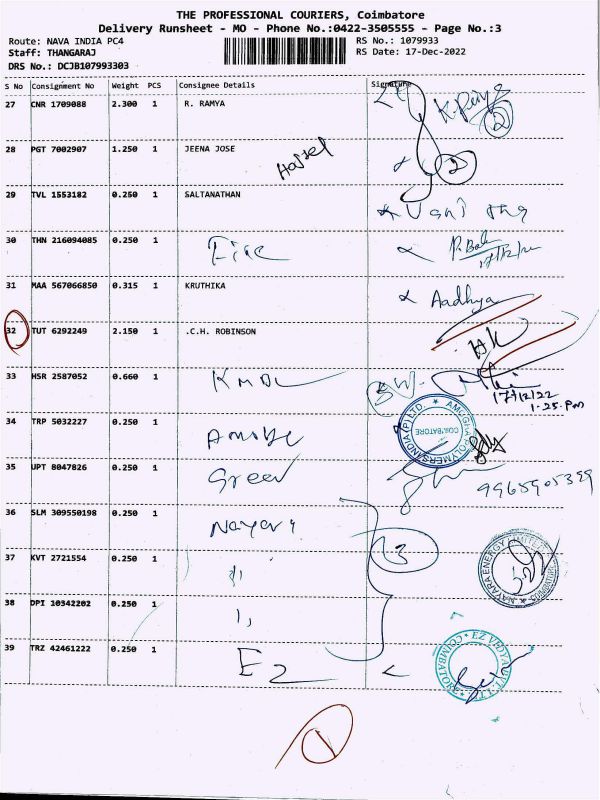 THE PROFESSIONAL COURIERS, Coimbatore
Delivery Runsheet - MO - Phone No.:0422-3505555 - Page No.:3
Route: NAVA INDIA PC4 RS No.: 1079933
Staff: THANGARAJ RS Date: 17-Dec-2022
DRS No.: DCJB107993303
S No Consignment No Weight PCS Consignee Details Signature
27 CNR 1709088 2.300 1 R. RAMYA
2
28 PGT 7002907 1.250 1 JEENA JOSE Hostel 2
29 TVL 1553182 0.250 1 SALTANATHAN
30 THN 216094085 0.250 1 Fire
17/12/22
31 MAA 567066850 0.315 1 KRUTHIKA Aadhya
32 TUT 6292249 2.150 1 .C.H. ROBINSON
33 HSR 2587052 0.660 1
17/12/22
1.25 pm
34 TRP 5032227 0.250 1 AMUGHA POLYMERS INDIA (P) LTD. COIMBATORE
35 UPT 8047826 0.250 1 Green 9965905399
36 SLM 309550198 0.250 1 Nayara
37 KVT 2721554 0.250 1 11 3 NAYARA ENERGY LIMITED COIMBATORE
38 DPI 10342202 0.250 1 11
39 TRZ 42461222 0.250 1 EZ EZ VIDYA PVT. LTD. COIMBATORE
1